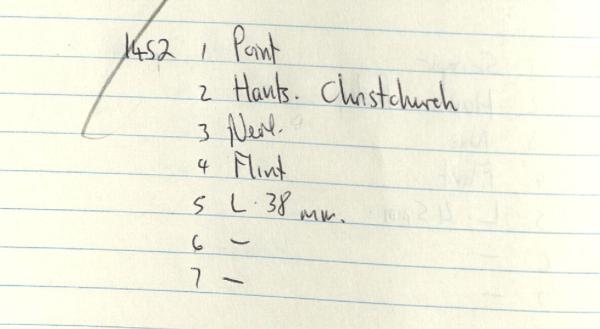 1452 1 Point
2 Hants. Christchurch
3 Neol.
4 Flint
5 L. 38 mm.
6 –
7 –